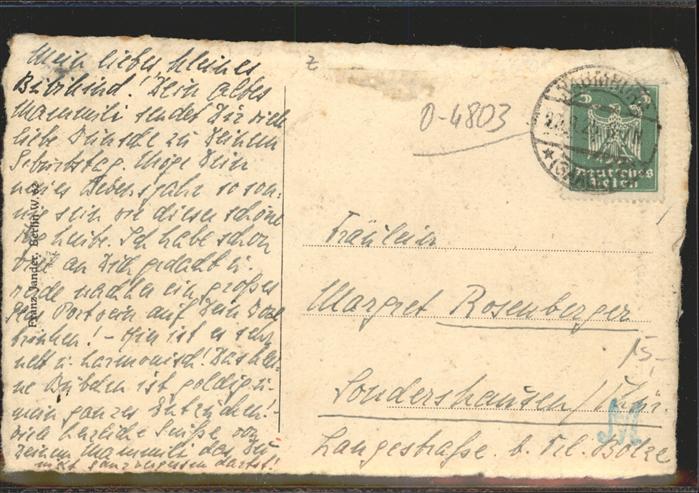 Mein liebes kleines
Bübikind! Dein liebes
Mammili sendet Dir viele
liebe Wünsche zu Deinem
Geburtstag. Möge Dein
neues Lebensjahr so son-
nig sein wie dieser schöne
Tag heute. Ich habe schon
viel an Dich gedacht u.
werde nachher ein großes
Glas Portwein auf Dein Wohl
trinken! - Hier ist es sehr
nett u. harmonisch! Das klei-
ne Bübchen ist goldig u.
mein ganzes Entzücken! -
Viele herzliche Grüße von
Deinem Mammili das Du
nicht ganz vergessen darfst!
Franz Jander, Berlin W.
z
0-4803
5 5
Deutsches
Reich
Fräulein
Margret Rosenberger
Sondershausen/Thür.
Langestraße. b. Frl. Bolze
15,-
M